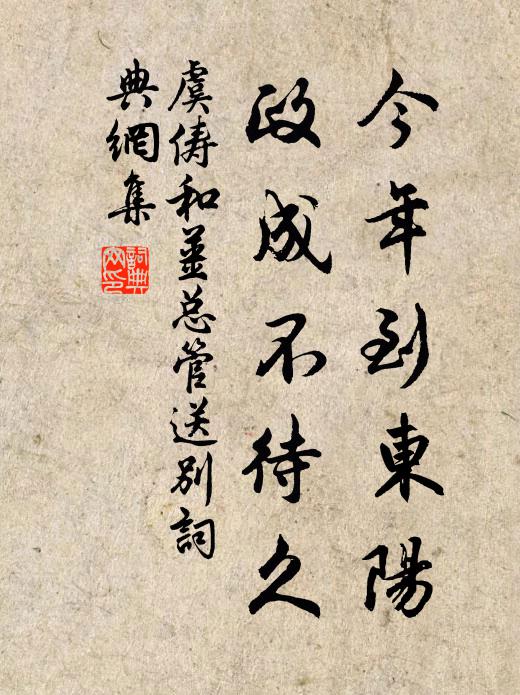 今年到東陽
政成不待久
虞俦和姜总管送別詞
典網集
詞典
网印